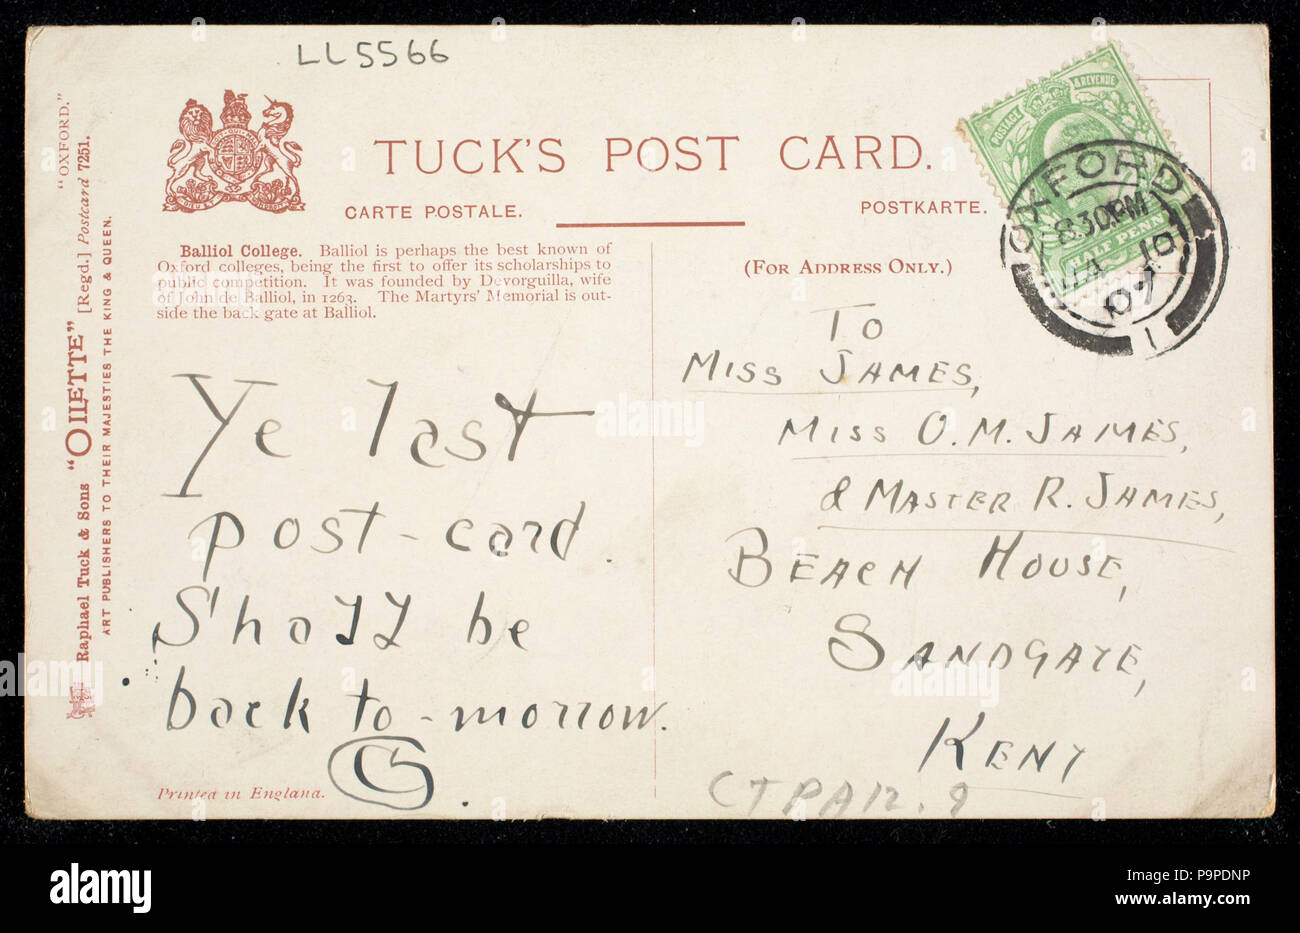 LL5566
TUCK'S POST CARD.
CARTE POSTALE.
POSTKARTE.
Balliol College. Balliol is perhaps the best known of
Oxford colleges, being the first to offer its scholarships to
public competition. It was founded by Devorguilla, wife
of John de Balliol, in 1263. The Martyrs' Memorial is out-
side the back gate at Balliol.
(FOR ADDRESS ONLY.)
"OXFORD."
Raphael Tuck & Sons "OILETTE" [Regd.] Postcard 7251.
ART PUBLISHERS TO THEIR MAJESTIES THE KING & QUEEN.
POSTAGE & REVENUE
HALF PENNY
OXFORD
8.30PM
JY 10
07
1
Ye last
post-card.
Shall be
back to-morrow.
G.
TO
MISS JAMES,
MISS O.M. JAMES,
& MASTER R. JAMES,
BEACH HOUSE,
SANDGATE,
KENT
Printed in England.
alamy
Image ID: P9PDNP
www.alamy.com